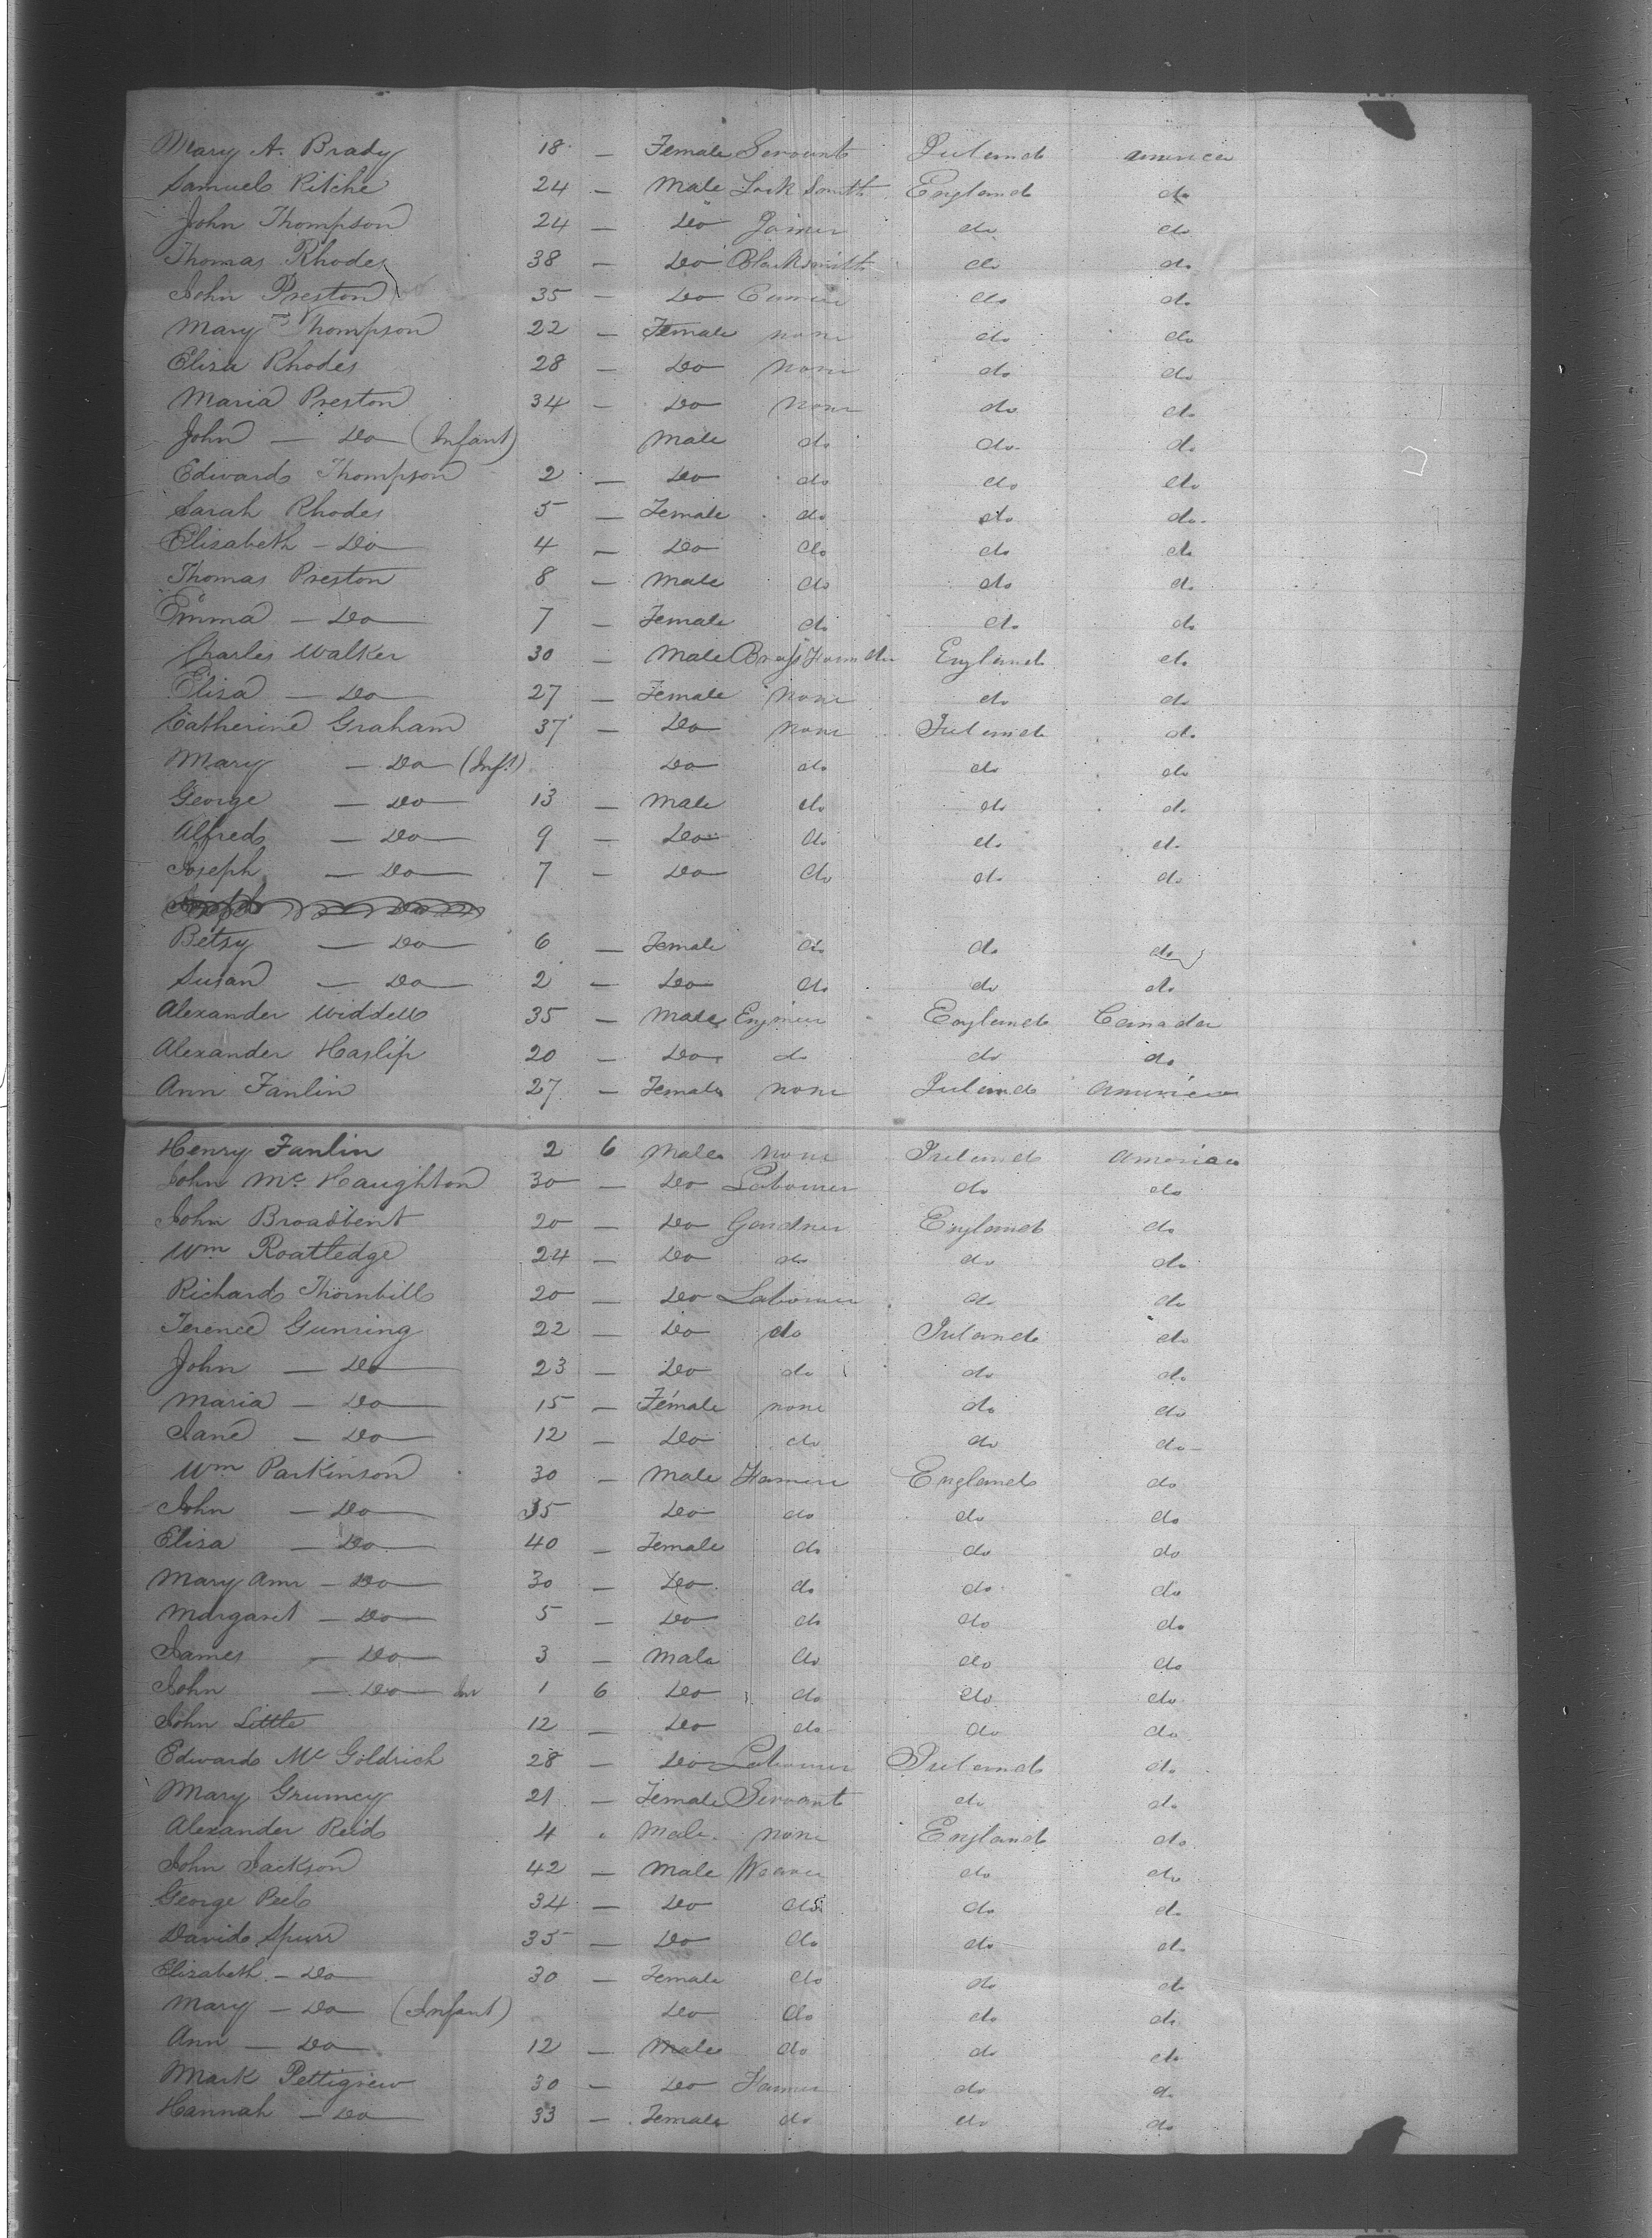 Mary A. Brady 18 — Female Servant Ireland America
Samuel Ritche 24 — Male Lock Smith England do
John Thompson 24 — Do Joiner do do
Thomas Rhodes 38 — Do Blacksmith do do
John Preston 35 — Do do do
Mary Thompson 22 — Female none do do
Eliza Rhodes 28 — Do none do do
Maria Preston 34 — Do none do do
John — Do (Infant) Male do do do
Edward Thompson 2 — Do do do do
Sarah Rhodes 5 — Female do do do
Elisabeth — Do 4 — Do do do do
Thomas Preston 8 — Male do do do
Emma — Do 7 — Female do do do
Charles Walker 30 — Male Brass Founder England do
Eliza — Do 27 — Female none do do
Catherine Graham 37 — Do none Ireland do
Mary — Do (Inft) Do do do do
George — Do 13 — Male do do do
Alfred — Do 9 — Do do do do
Joseph — Do 7 — Do do do do
Betsy — Do 6 — Female do do do
Susan — Do 2 — Do do do do
Alexander Widdell 35 — Male Engineer England Canada
Alexander Haslip 20 — Do do do do
Ann Fanlin 27 — Female none Ireland America
Henry Fanlin 2 6 Male none Ireland America
John Mc Haughton 30 — Do Labourer do do
John Broadbent 20 — Do Gardner England do
Wm Roatledge 24 — Do do do do
Richard Thornhill 20 — Do Labourer do do
Terence Gunning 22 — Do do Ireland do
John — Do 23 — Do do do do
Maria — Do 15 — Female none do do
Jane — Do 12 — Do do do do
Wm Parkinson 30 — Male Farmer England do
John — Do 35 Do do do do
Eliza — Do 40 — Female do do do
Mary Ann — Do 30 — Do do do do
Margaret — Do 5 — Do do do do
James — Do 3 — Male do do do
John — Do 1 6 Do do do do
John Little 12 — Do do do do
Edward Mc Goldrich 28 — Do Labourer Ireland do
Mary Grumey 21 — Female Servant do do
Alexander Reid 4 Male none England do
John Jackson 42 — Male Weaver do do
George Peel 34 — Do do do do
David Spurr 35 — Do do do do
Elizabeth — Do 30 — Female do do do
Mary — Do (Infant) Do do do do
Ann — Do 12 — Male do do do
Mark Pettigrew 30 — Do Farmer do do
Hannah — Do 33 — Female do do do